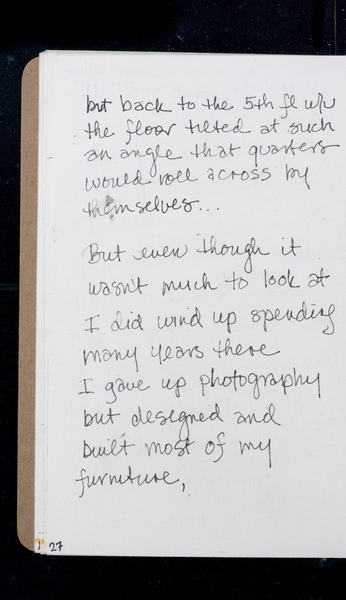 but back to the 5th fl w/u
the floor tilted at such
an angle that quarters
would roll across by
themselves...
But even though it
wasn't much to look at
I did wind up spending
many years there
I gave up photography
but designed and
built most of my
furniture,
27